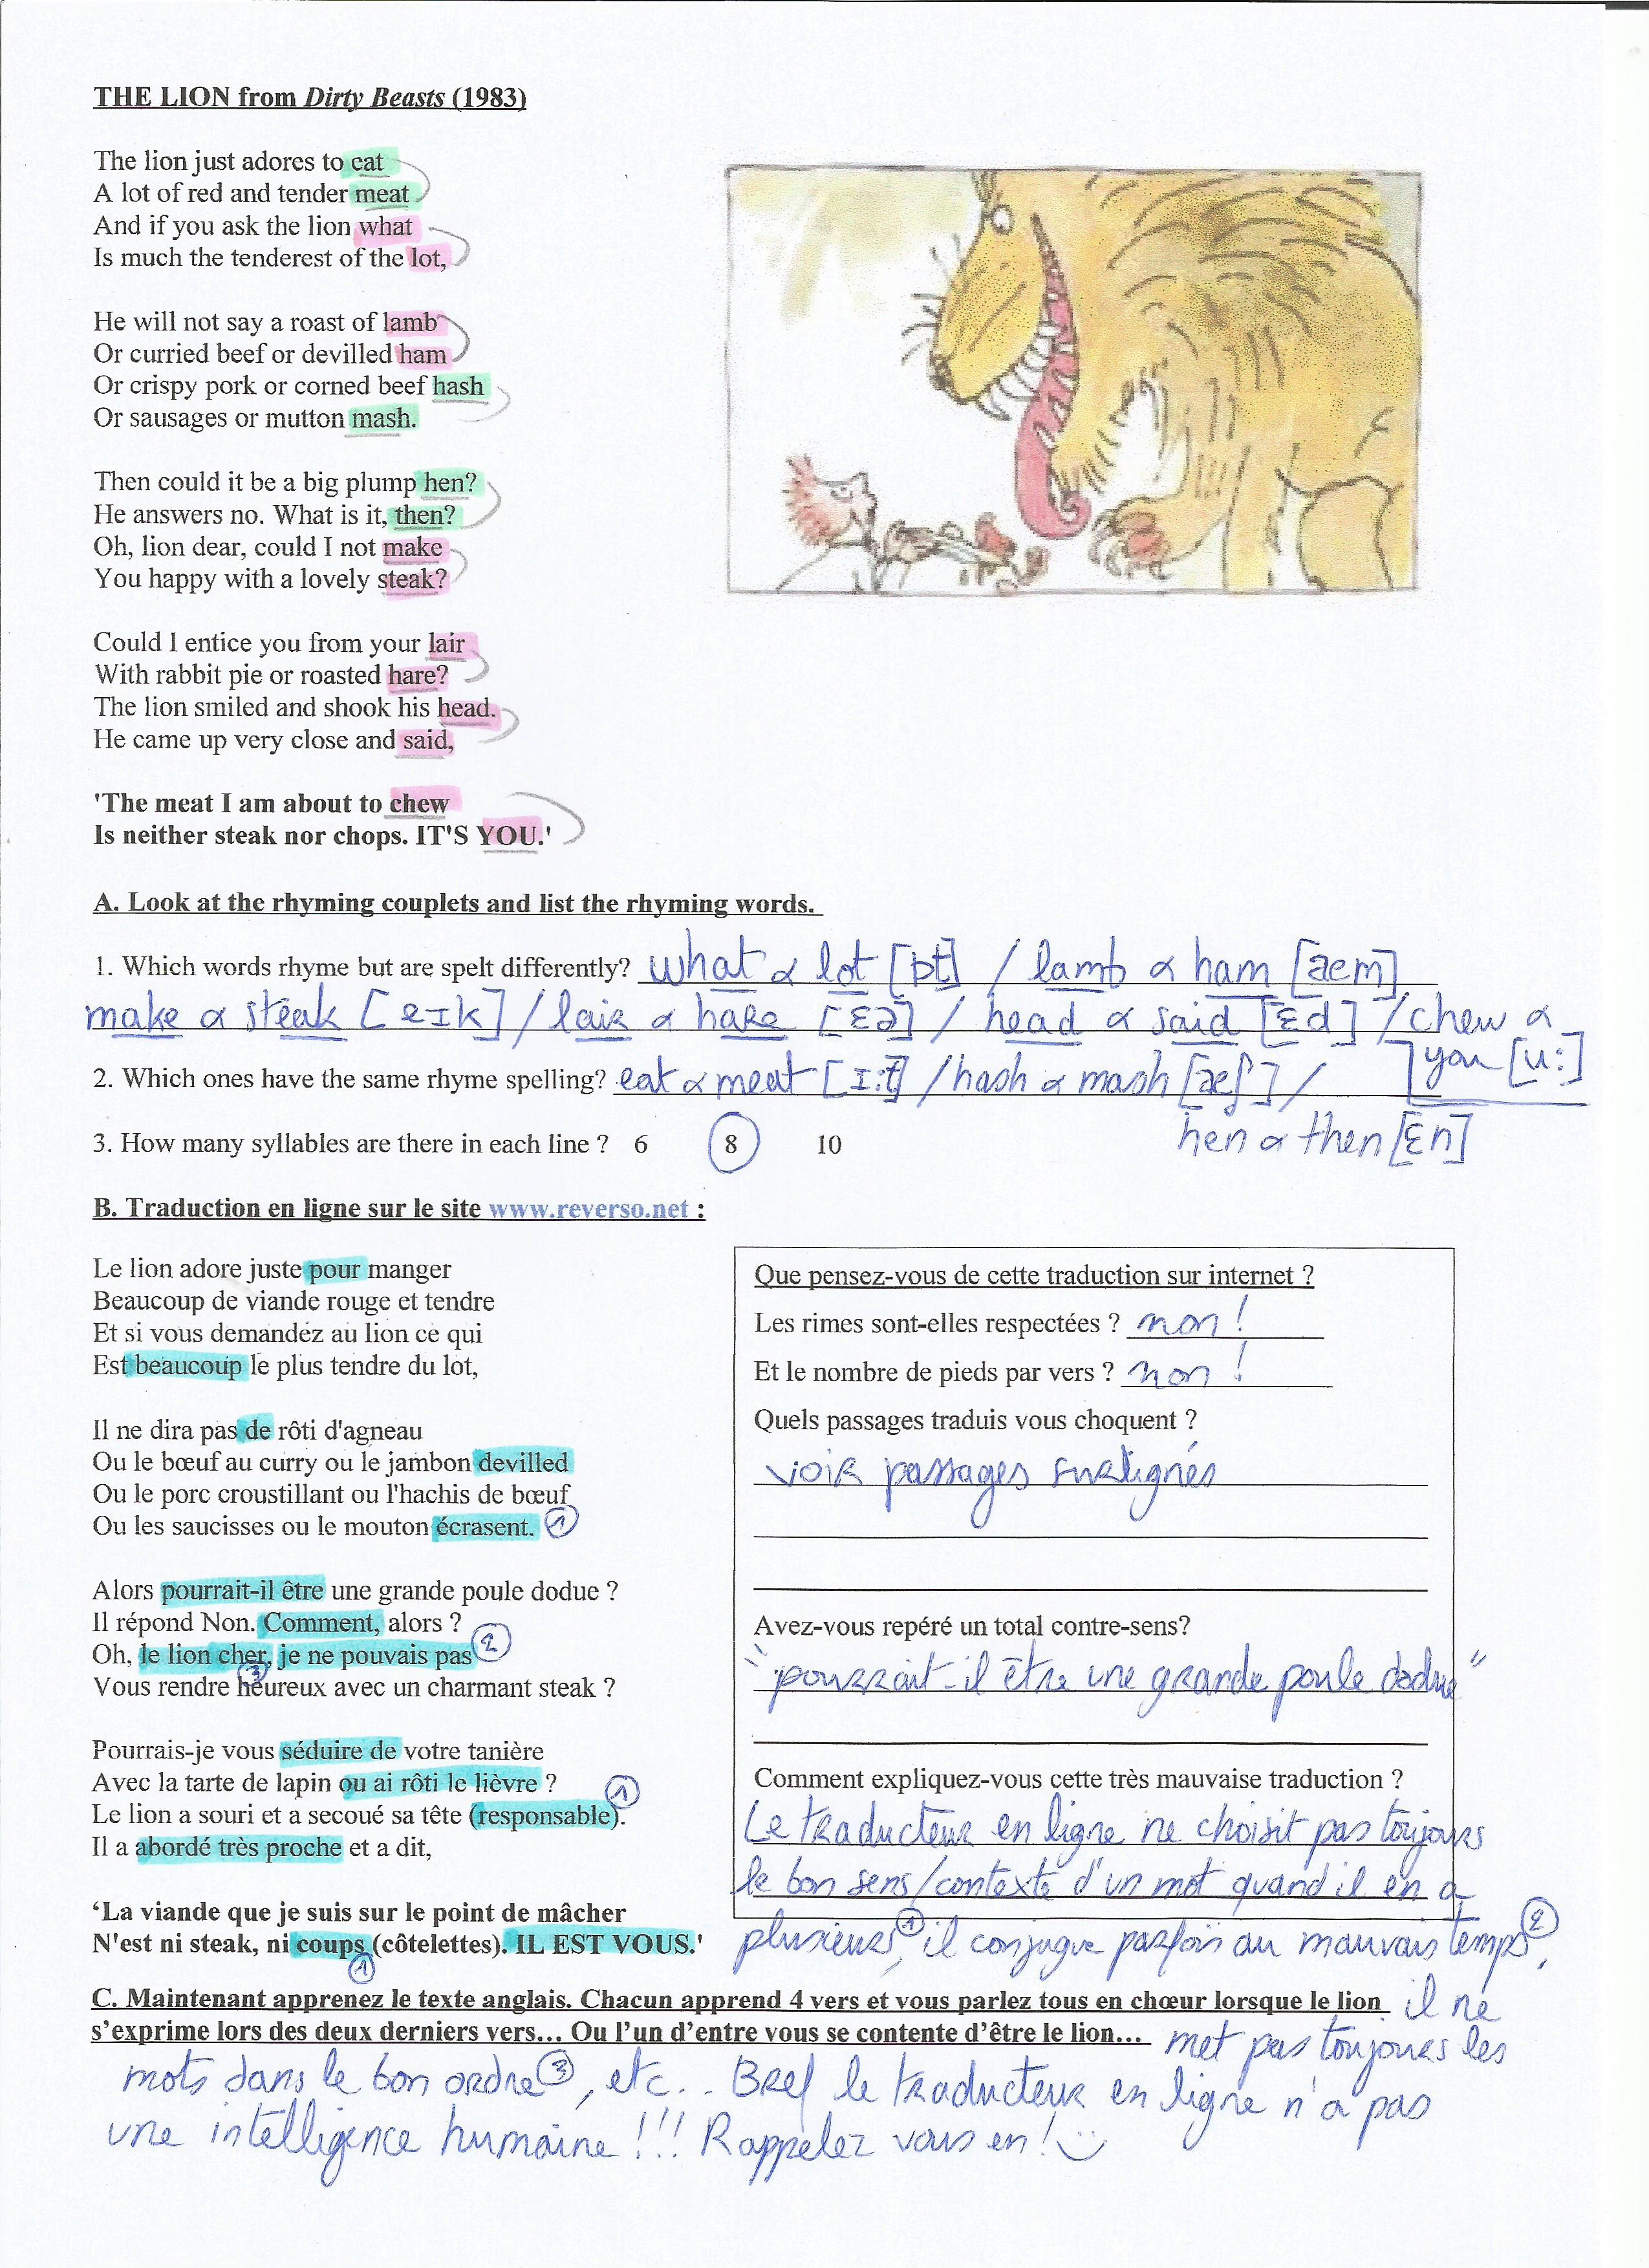 THE LION from Dirty Beasts (1983)
The lion just adores to eat
A lot of red and tender meat
And if you ask the lion what
Is much the tenderest of the lot,
He will not say a roast of lamb
Or curried beef or devilled ham
Or crispy pork or corned beef hash
Or sausages or mutton mash.
Then could it be a big plump hen?
He answers no. What is it, then?
Oh, lion dear, could I not make
You happy with a lovely steak?
Could I entice you from your lair
With rabbit pie or roasted hare?
The lion smiled and shook his head.
He came up very close and said,
'The meat I am about to chew
Is neither steak nor chops. IT'S YOU.'
A. Look at the rhyming couplets and list the rhyming words.
1. Which words rhyme but are spelt differently? what & lot [ɒt] / lamb & ham [æm]
make & steak [eɪk] / lair & hare [ɛə] / head & said [ɛd] / chew &
you [u:]
2. Which ones have the same rhyme spelling? eat & meat [ɪ:t] / hash & mash [æʃ] /
hen & then [ɛn]
3. How many syllables are there in each line ? 6 8 10
B. Traduction en ligne sur le site www.reverso.net :
Le lion adore juste pour manger
Beaucoup de viande rouge et tendre
Et si vous demandez au lion ce qui
Est beaucoup le plus tendre du lot,
Il ne dira pas de rôti d'agneau
Ou le bœuf au curry ou le jambon devilled
Ou le porc croustillant ou l'hachis de bœuf
Ou les saucisses ou le mouton écrasent. 1
Alors pourrait-il être une grande poule dodue ?
Il répond Non. Comment, alors ?
Oh, le lion cher, je ne pouvais pas 2
3
Vous rendre heureux avec un charmant steak ?
Pourrais-je vous séduire de votre tanière
Avec la tarte de lapin ou ai rôti le lièvre ?
Le lion a souri et a secoué sa tête (responsable). 1
Il a abordé très proche et a dit,
‘La viande que je suis sur le point de mâcher
N'est ni steak, ni coups (côtelettes). IL EST VOUS.'
1
Que pensez-vous de cette traduction sur internet ?
Les rimes sont-elles respectées ? non !
Et le nombre de pieds par vers ? non !
Quels passages traduis vous choquent ?
voir passages surlignés
Avez-vous repéré un total contre-sens?
"pourrait-il être une grande poule dodue"
Comment expliquez-vous cette très mauvaise traduction ?
Le traducteur en ligne ne choisit pas toujours
le bon sens/contexte d'un mot quand il en a
plusieurs 1, il conjugue parfois au mauvais temps 2,
il ne
met pas toujours les
mots dans le bon ordre 3, etc.. Bref le traducteur en ligne n'a pas
une intelligence humaine !!! Rappelez vous en !
C. Maintenant apprenez le texte anglais. Chacun apprend 4 vers et vous parlez tous en chœur lorsque le lion
s’exprime lors des deux derniers vers… Ou l’un d’entre vous se contente d’être le lion…